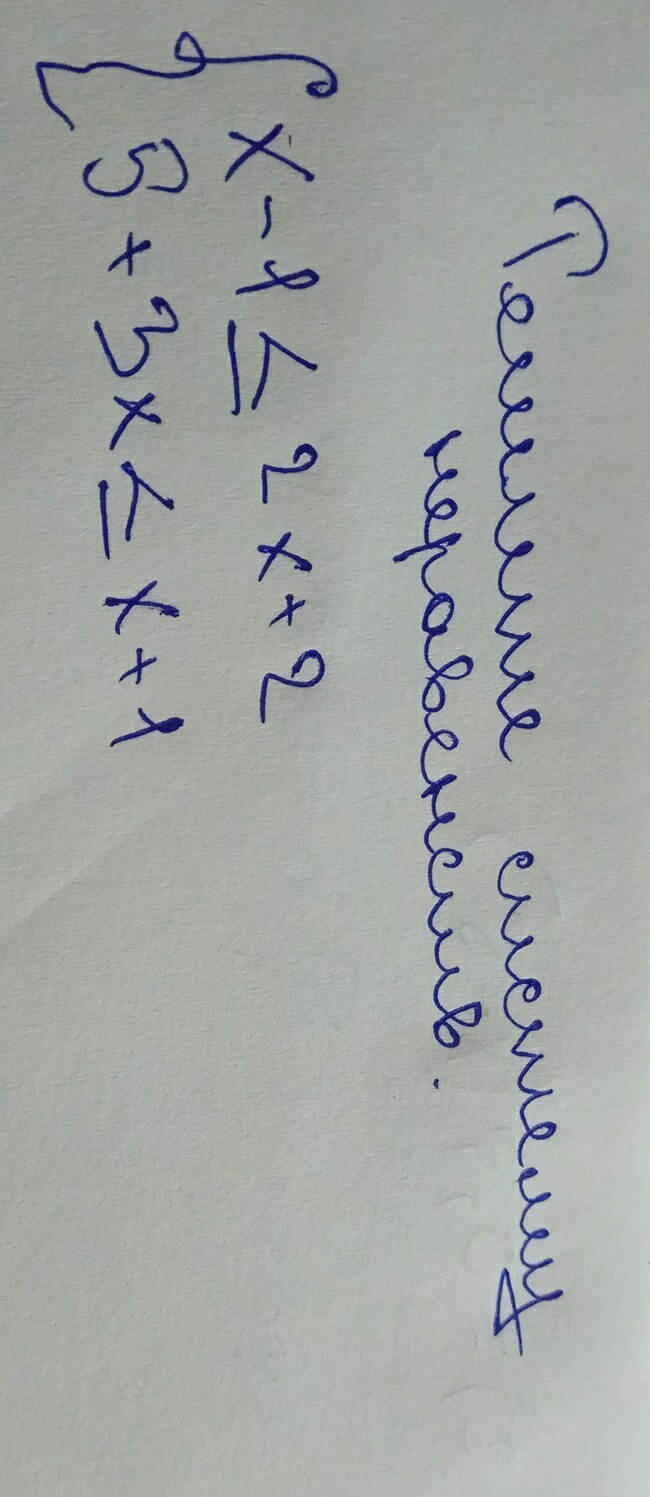 Решите систему
неравенств.
x - 1 ≤ 2x + 2
5 + 3x ≤ x + 1